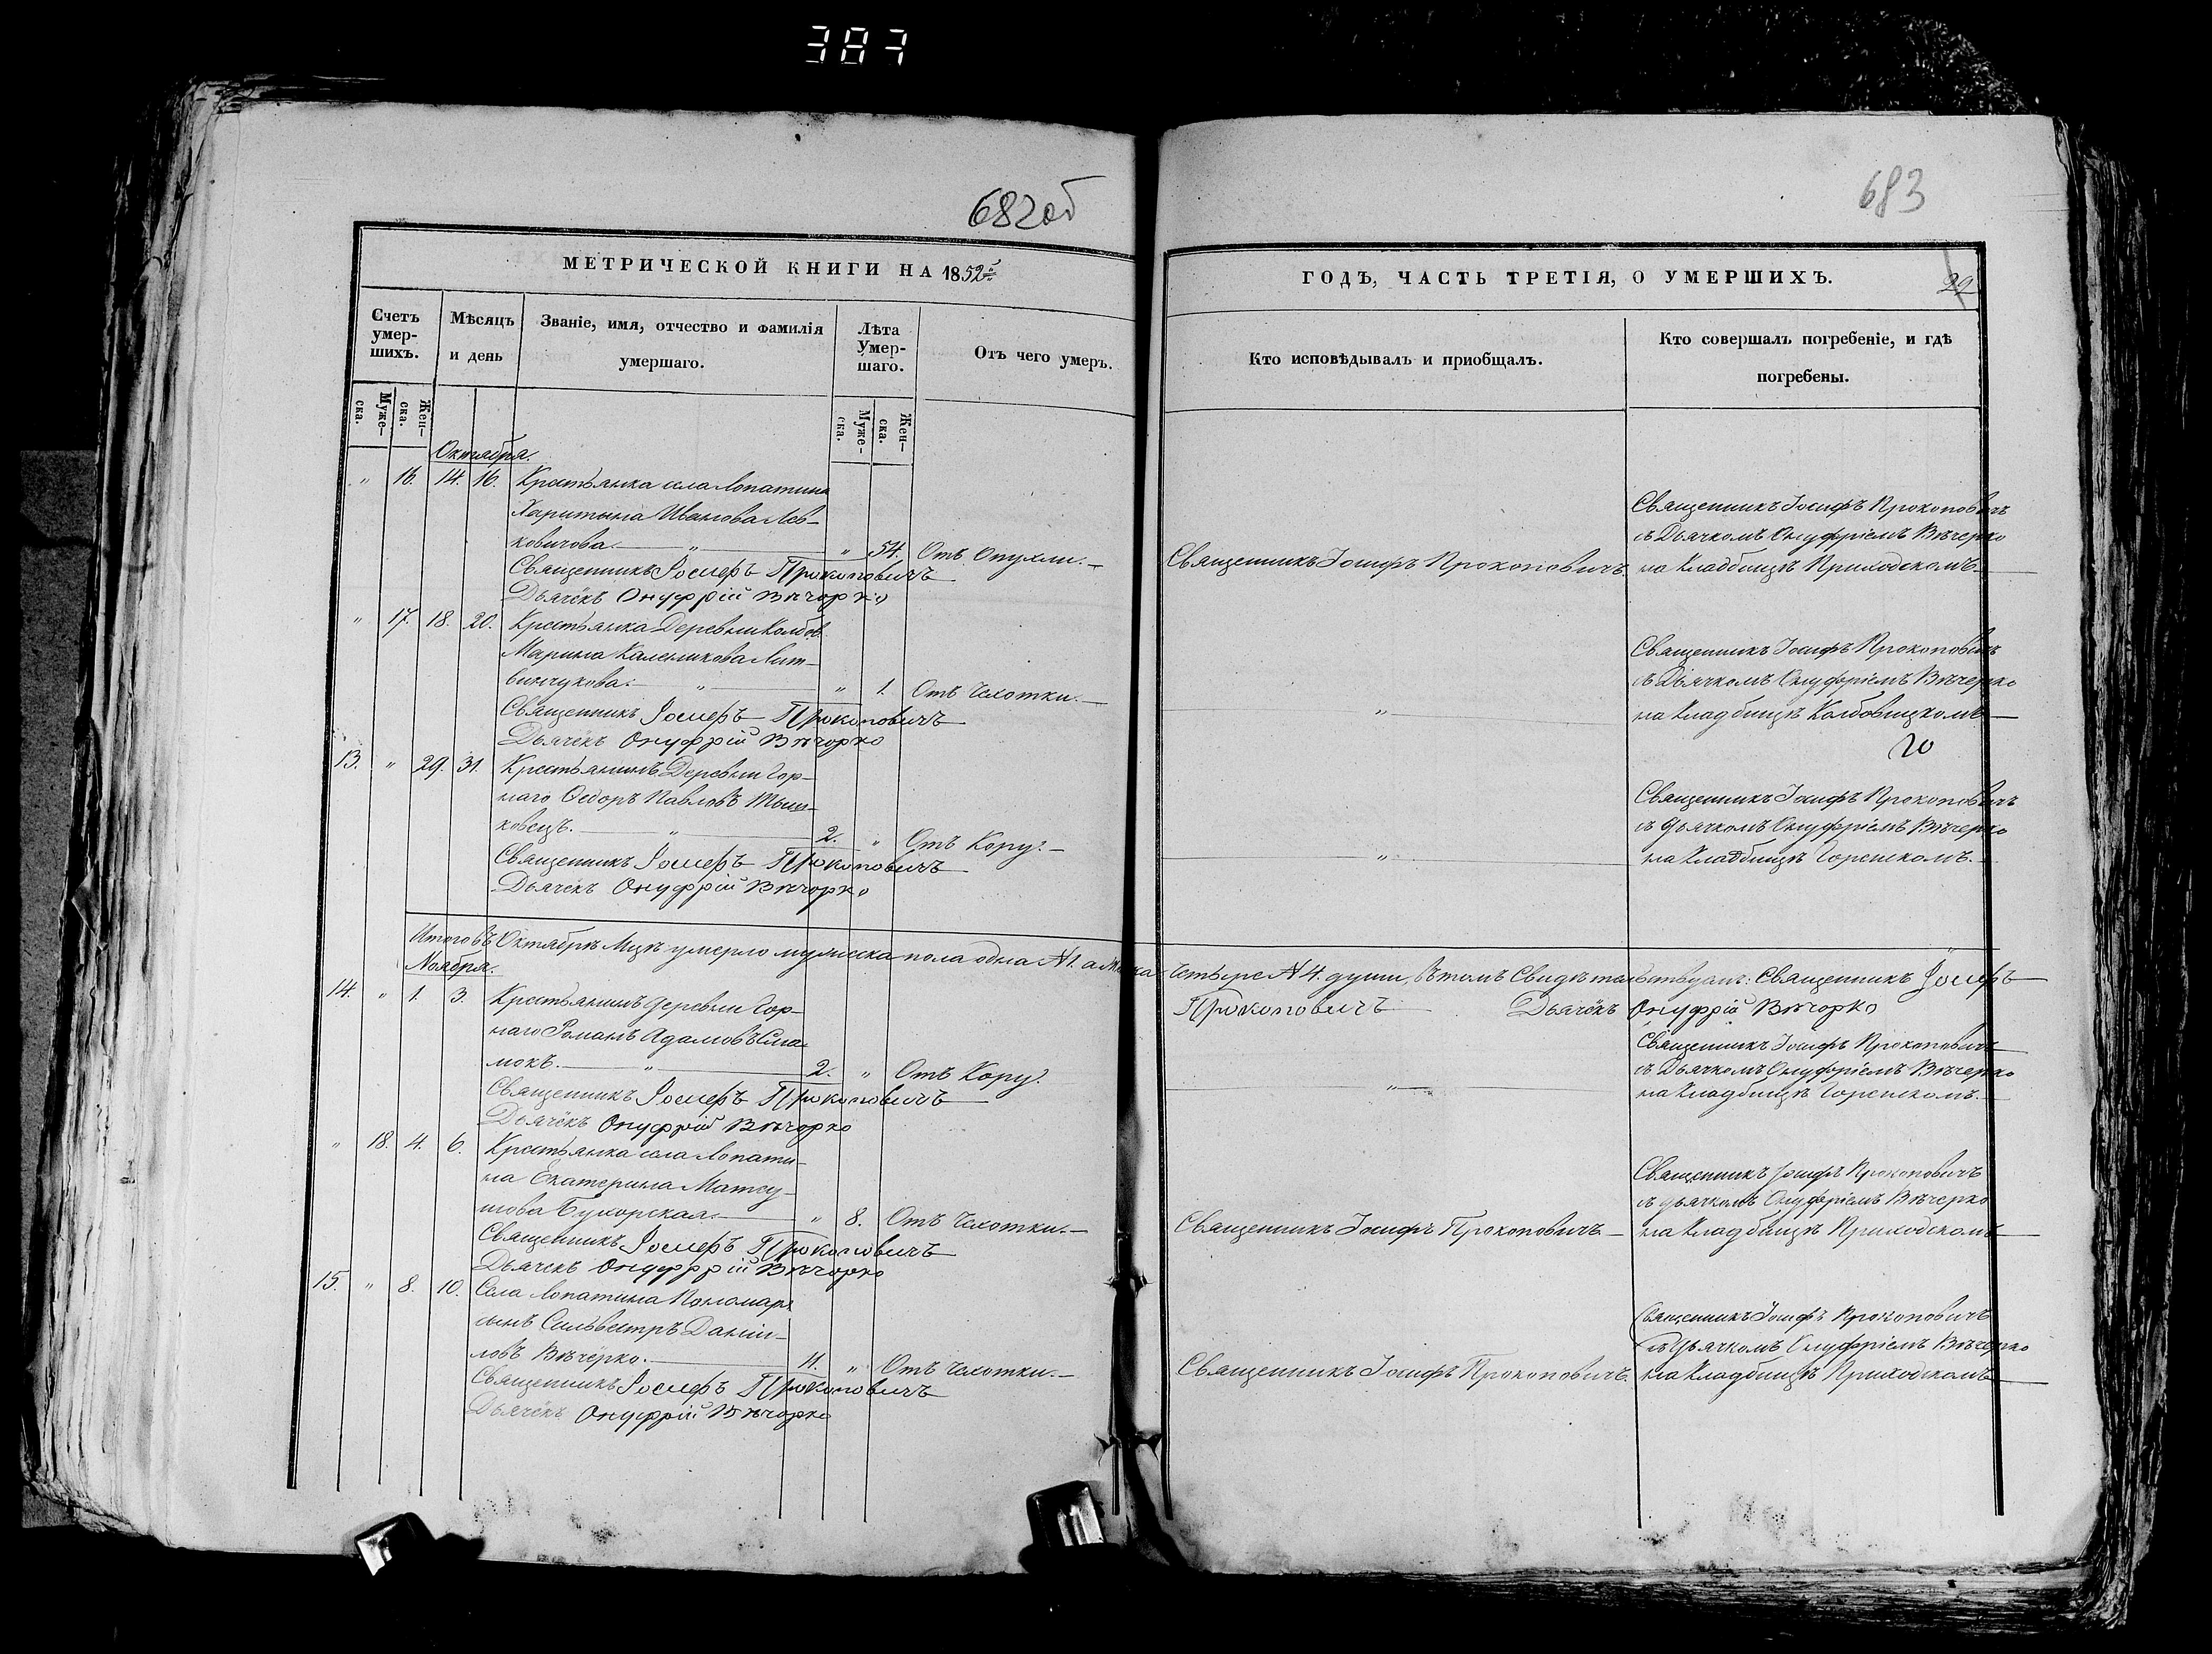 387
682об
МЕТРИЧЕСКОЙ КНИГИ НА 1852й
Счетъ умер-шихъ.
Мѣсяцъ и день
Званіе, имя, отчество и фамилія умершаго.
Лѣта Умер-шаго.
Отъ чего умеръ.
Муже-ска.
Жен-ска.
Муже-ска.
Жен-ска.
Октября.
" 16. 14. 16. Крестьянка села Лопатина
Харитына Иванова Лев-
ковичова. " " 54. Отъ Опухли.
Священникъ Іосифъ Прокоповичъ
Дьячекъ Онуфрій Вѣчорко
" 17. 18. 20. Крестьянка Деревни Колбов.
Марина Каленикова Лит-
винчукова. " " 1. Отъ Чахотки.
Священникъ Іосифъ Прокоповичъ
Дьячекъ Онуфрій Вѣчорко
13. " 29. 31. Крестьянинъ Деревни Гор-
наго Ѳедоръ Павловъ Тыш-
ковецъ. " 2. " Отъ Кору.
Священникъ Іосифъ Прокоповичъ
Дьячекъ Онуфрій Вѣчорко
Итого въ Октябрѣ Мцѣ умерло мужеска пола одна № 1. а
Ноября.
14. " 1. 3. Крестьянинъ Деревни Гор-
наго Романъ Адамовъ
мокъ. " 2. " Отъ Кору.
Священникъ Іосифъ Прокоповичъ
Дьячекъ Онуфрій Вѣчорко
" 18. 4. 6. Крестьянка села Лопати-
на Екатерина
Бухорская. " 8. Отъ Чахотки.
Священникъ Іосифъ Прокоповичъ
Дьячекъ Онуфрій Вѣчорко
15. " 8. 10. Села Лопатина Пономаря
сынъ Сильвестръ Даніи-
ловъ Вѣчерко. 11. " Отъ Чахотки.
Священникъ Іосифъ Прокоповичъ
Дьячекъ Онуфрій Вѣчорко
683
ГОДЪ, ЧАСТЬ ТРЕТІЯ, О УМЕРШИХЪ.
29
Кто исповѣдывалъ и приобщалъ.
Кто совершалъ погребеніе, и гдѣ погребены.
Священникъ Іосифъ Прокоповичъ
съ Дьячкомъ Онуфріемъ Вѣчерко
Священникъ Іосифъ Прокоповичъ. на Кладбищѣ Приходскомъ.
Священникъ Іосифъ Прокоповичъ
съ Дьячкомъ Онуфріемъ Вѣчерко
" на Кладбищѣ Колбовицкомъ
Священникъ Іосифъ Прокоповичъ
съ Дьячкомъ Онуфріемъ Вѣчерко
" на Кладбищѣ Горенскомъ.
четыре № 4. души, въ томъ Свидѣтельствуемъ: Священникъ Іосифъ
Прокоповичъ Дьячекъ Онуфрій Вѣчорко
Священникъ Іосифъ Прокоповичъ
съ Дьячкомъ Онуфріемъ Вѣчерко
" на Кладбищѣ Горенскомъ.
Священникъ Іосифъ Прокоповичъ
съ Дьячкомъ Онуфріемъ Вѣчерко
Священникъ Іосифъ Прокоповичъ на Кладбищѣ Приходскомъ
Священникъ Іосифъ Прокоповичъ
съ Дьячкомъ Онуфріемъ Вѣчерко
Священникъ Іосифъ Прокоповичъ. на Кладбищѣ Приходскомъ